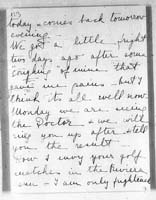 today & comes back tomorrow
evening.
We got a little fright
two days ago after some
coughing of mine that
gave me pains. but I
think its all well now.
Monday we are seeing
the Doctor & we will
ring you up after & tell
you the result.
How I envy your golf
matches in the Riviera
sun. I am only frightened